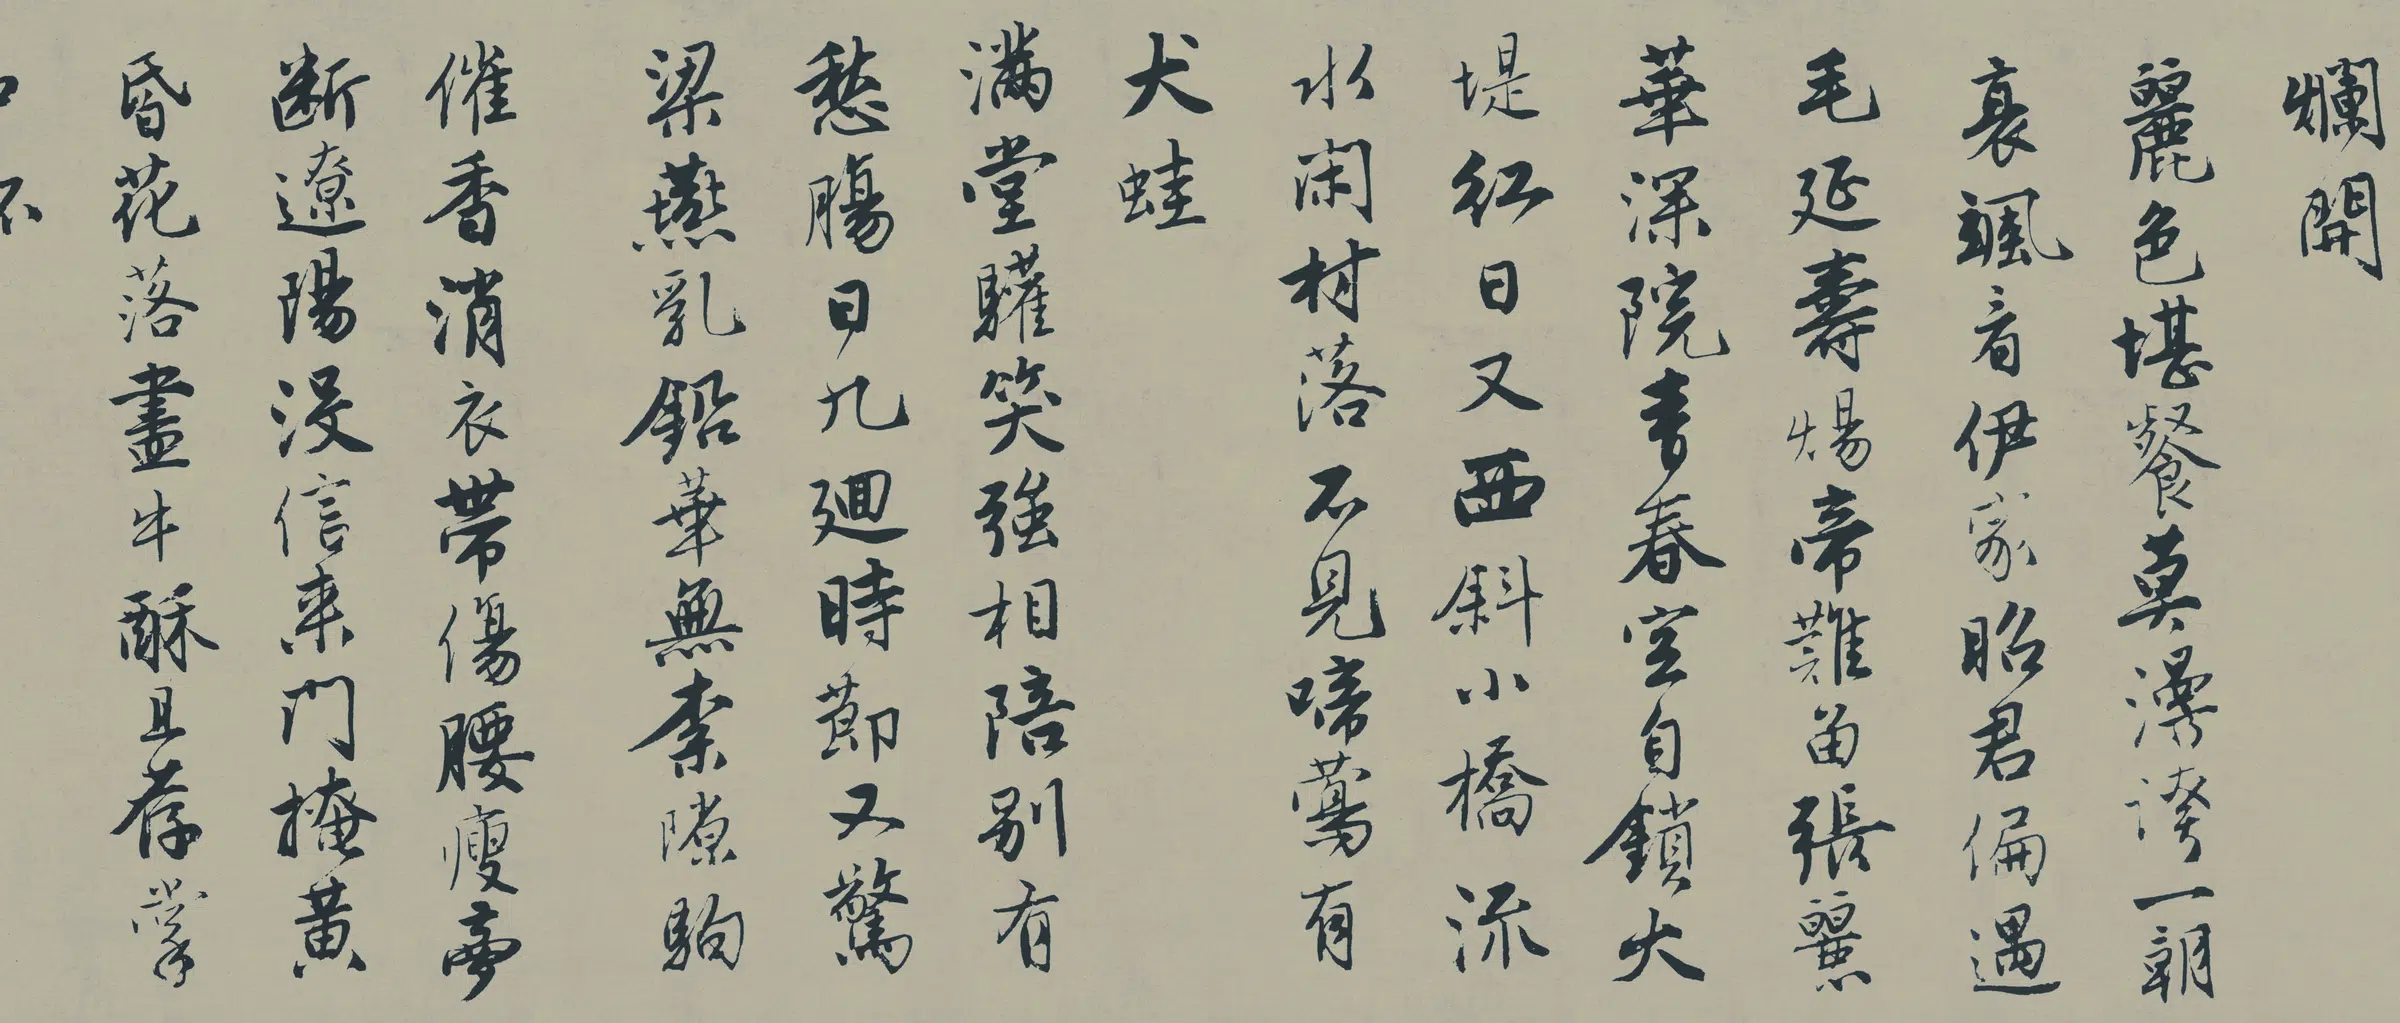 爛開
麗色堪餐莫漫誇一朝
衰颯看伊家昭君偏遇
毛延壽煬帝難留張麗
華深院青春空自鎖大
堤紅日又西斜小橋流
水閑村落不見啼鶯有
犬蛙
滿堂驩笑強相陪別有
愁腸日九廻時節又驚
梁燕乳鉛華無柰隙駒
催香消衣帶傷腰瘦夢
斷遼陽沒信来門掩黃
昏花落盡牛酥且荐掌